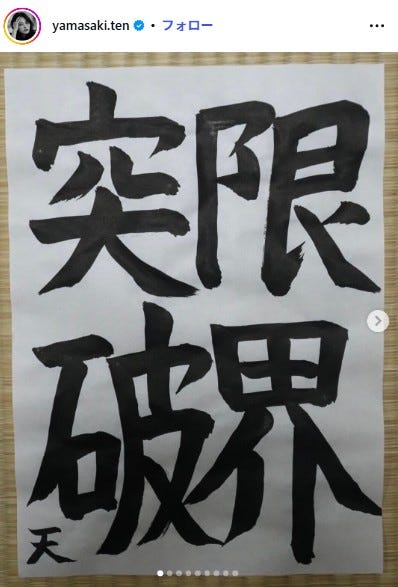 yamasaki.ten • フォロー
限界
突破
天